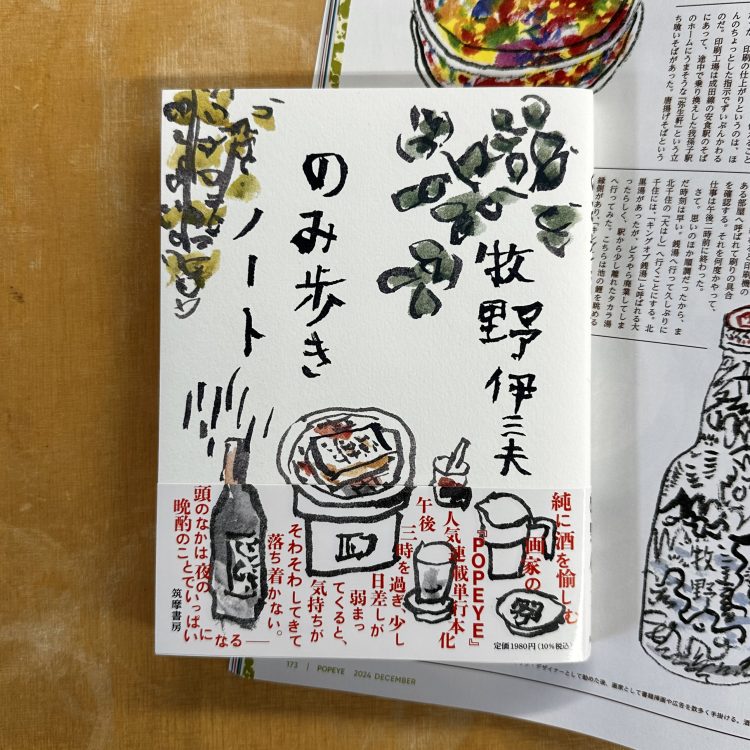 牧野伊三夫
のみ歩き
ノート
純に酒を愉しむ
画家の
『POPEYE』
人気連載単行本化
午後三時を過ぎ、少し
日差しが
弱まっ
てくると、
気持ちが
そわそわしてきて
落ち着かない。
頭のなかは、夜の
晩酌のことでいっぱい
になる――
筑摩書房
定価1980円(10%税込)
印刷の仕上がりというのは、ほ
んのちょっとした指示でずいぶんかわる
のだ。印刷工場は成田線の安食駅のそば
にあって、途中で乗り換えした我孫子駅
のホームにうまそうな「弥生軒」という立
ち喰いそばがあった。唐揚げそばという
ある部屋へ呼ばれて刷りの具合
を確認する。それを何度かやって、
仕事は午後二時前に終わった。
さて。思いのほか順調だったから、ま
だ時刻は早い。銭湯へ行って久しぶりに
北千住の「大はし」へ行くことにする。北
千住には、「キングオブ銭湯」と呼ばれる大
黒湯があったが、どうやら廃業してしま
ったらしく、駅から少し離れたタカラ湯
へ行ってみた。こちらは池の鯉を眺める
縁側があり、
牧野
173 | POPEYE 2024 DECEMBER
デザイナーとして勤めた後、画家として書籍挿画や広告を数多く手掛ける。酒